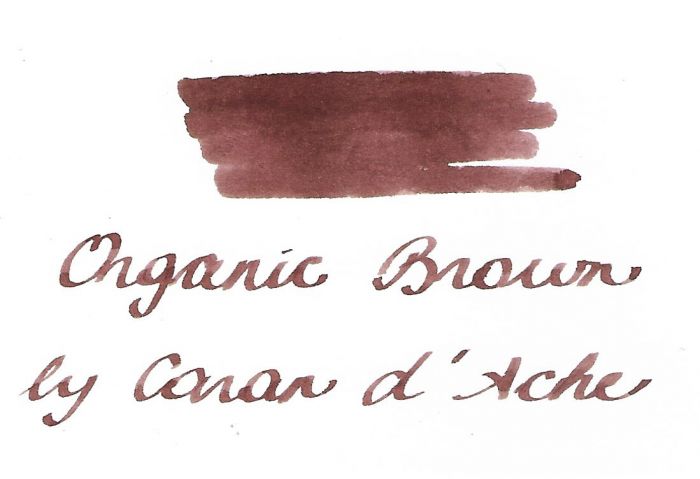 Organic Brown
by Caran d'Ache